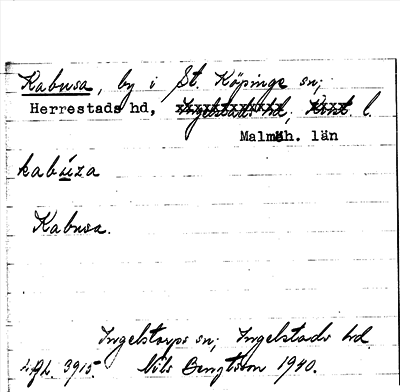 Kabusa, by i St. Köpinge sn;
Herrestads hd, Ingelstads hd, Krist. l.
Malmöh. län
kabúza
Kabusa.
Ingelstorps sn; Ingelstads hd.
3915. Nils Bengtsson 1940.